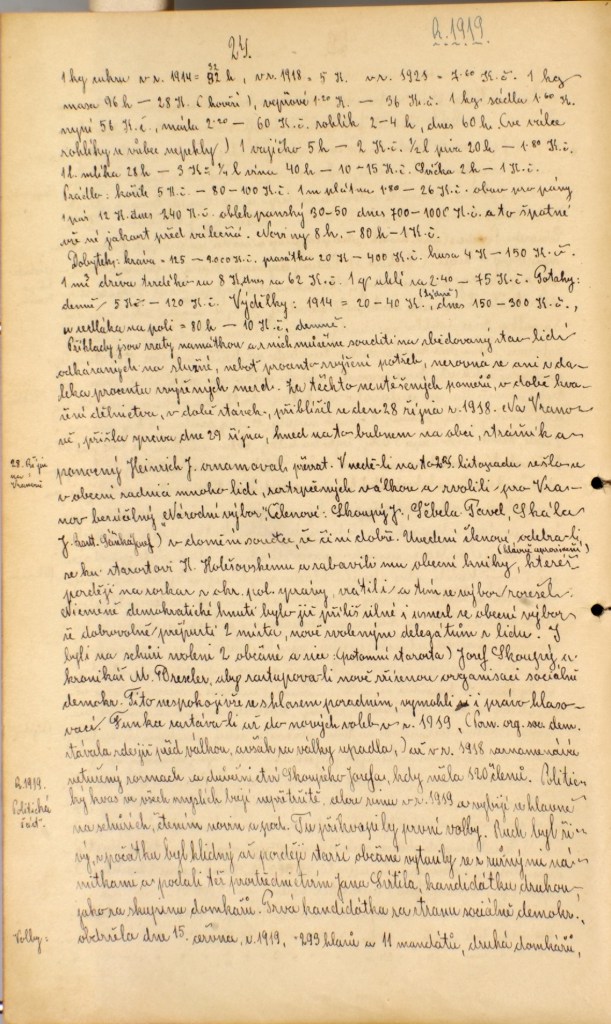 R. 1919.
24.
1 kg cukru v r. 1914 = 92 h, v r. 1918 = 5 K. v r. 1921 = 7·60 K.č. 1 kg
masa 96 h — 28 K. (kouří), vepřové 1·20 K. — 36 K.č. 1 kg. sádla 1·60 K.
nyní 56 K.č., másla 2·20 — 60 K.č. rohlík 2-4 h, dnes 60 h. (ve válce
rohlíky se vůbec nepekly) 1 vajíčko 5 h — 2 K.č. ½ l piva 20 h — 1·80 K.č.
1 l. mlíka 28 h — 3 K.č. ¼ l vína 40 h — 10-15 K.č. Svíčka 2 h — 1 K.č.
Prádlo: košile 5 K.č. — 80-100 K.č. 1 m plátna 1·80 — 26 K.č. obuv pro pány
1 pár 12 K. dnes 240 K.č. oblek panský 30-50 dnes 700-1000 K.č. a to špatné
ne jakost před válečná. Noviny 8 h. — 80 h - 1 K.č.
Dobytek: kráva = 125 — 2000 K.č., prasátka 20 K — 400 K.č. husa 4 K — 150 K.č.
1 m³ dříva tvrdého za 8 K, dnes za 62 K.č. 1 q uhlí za 2·40 — 75 K.č. Potahy:
denně 5 K.č — 120 K.č. Výdělky: 1914 = 20-40 K. (týdně), dnes 150-300 K.č.,
u sedláka na poli = 80 h — 10 K.č., denně.
Příklady jsou vzaty namátkou a z nich můžeme souditi na zbídovaný stav lidí
odkázaných na služné, neboť procento zvýšení potřeb, nerovná se ani z da-
leka procentu zvýšených mezd. Za těchto neutěšených poměrů, v době kva-
šení dělnictva, v době stávek, přiblížil se den 28 října v r. 1918. Na Vrano-
vě, přišla zpráva dne 29 října, hned na to bubnem na obci, strážník a
28. Říjen
na
Vranově
ponocný Heinrich J. oznamovali převrat. V neděli na to 2. listopadu sešlo se
v obecní radnici mnoho lidí, roztrpčených válkou a zvolili pro Vra-
nov beztřídný „Národní výbor“. Členové: Skoupý J., Sýbela Pavel, Skála
J. v domění soudíce, že činí dobře. Uvedení členové, odebrali
se ku starostovi K. Holešovskému a zabavili mu obecní knihy, kteréž
později na rozkaz z okr. pol. správy, vrátili a tím se výbor rozešel.
Nicméně demokratické hnutí bylo již příliš silné i usnesl se obecní výbor
že dobrovolně přepustí 2 místa, nově zvoleným delegátům z lidu. I
byli na schůzi zvoleni 2 občané a sice: (potomní starosta) Josef Skoupý, a
kronikář M. Drexler, aby zastupovali nově zřízenou organisaci sociálně
demokr. Tito nespokojivše se s hlasem poradním, vymohli si i právo hlaso-
vací. Funkce zastávali až do nových voleb v r. 1919, (Pozn. org. soc. dem.
stávala zde již před válkou, avšak za války upadla,) až v r. 1918 zaznamenává
netušený rozmach za důvěrnictví Skoupého Josefa, kdy měla 120 členů. Politic-
R. 1919.
Politická
část.
ký kvas ve všech myslích bují nepřetržitě, celou zimu v r. 1919 a vybíjí se hlavně
na schůzích, čtením novin a pod. Tu přikvapily první volby. Ruch byl ži-
vý, z počátku byl klidný až později starší občané vytasily se s různými ná-
mitkami a podali též prostřednictvím Jana Sítila, kandidátku druhou
jako za skupinu domkářů. Prvá kandidátka za stranu sociálně demokr.,
Volby:
obdržela dne 15. června, r. 1919, - 293 hlasů a 11 mandátů, druhá domkářů,